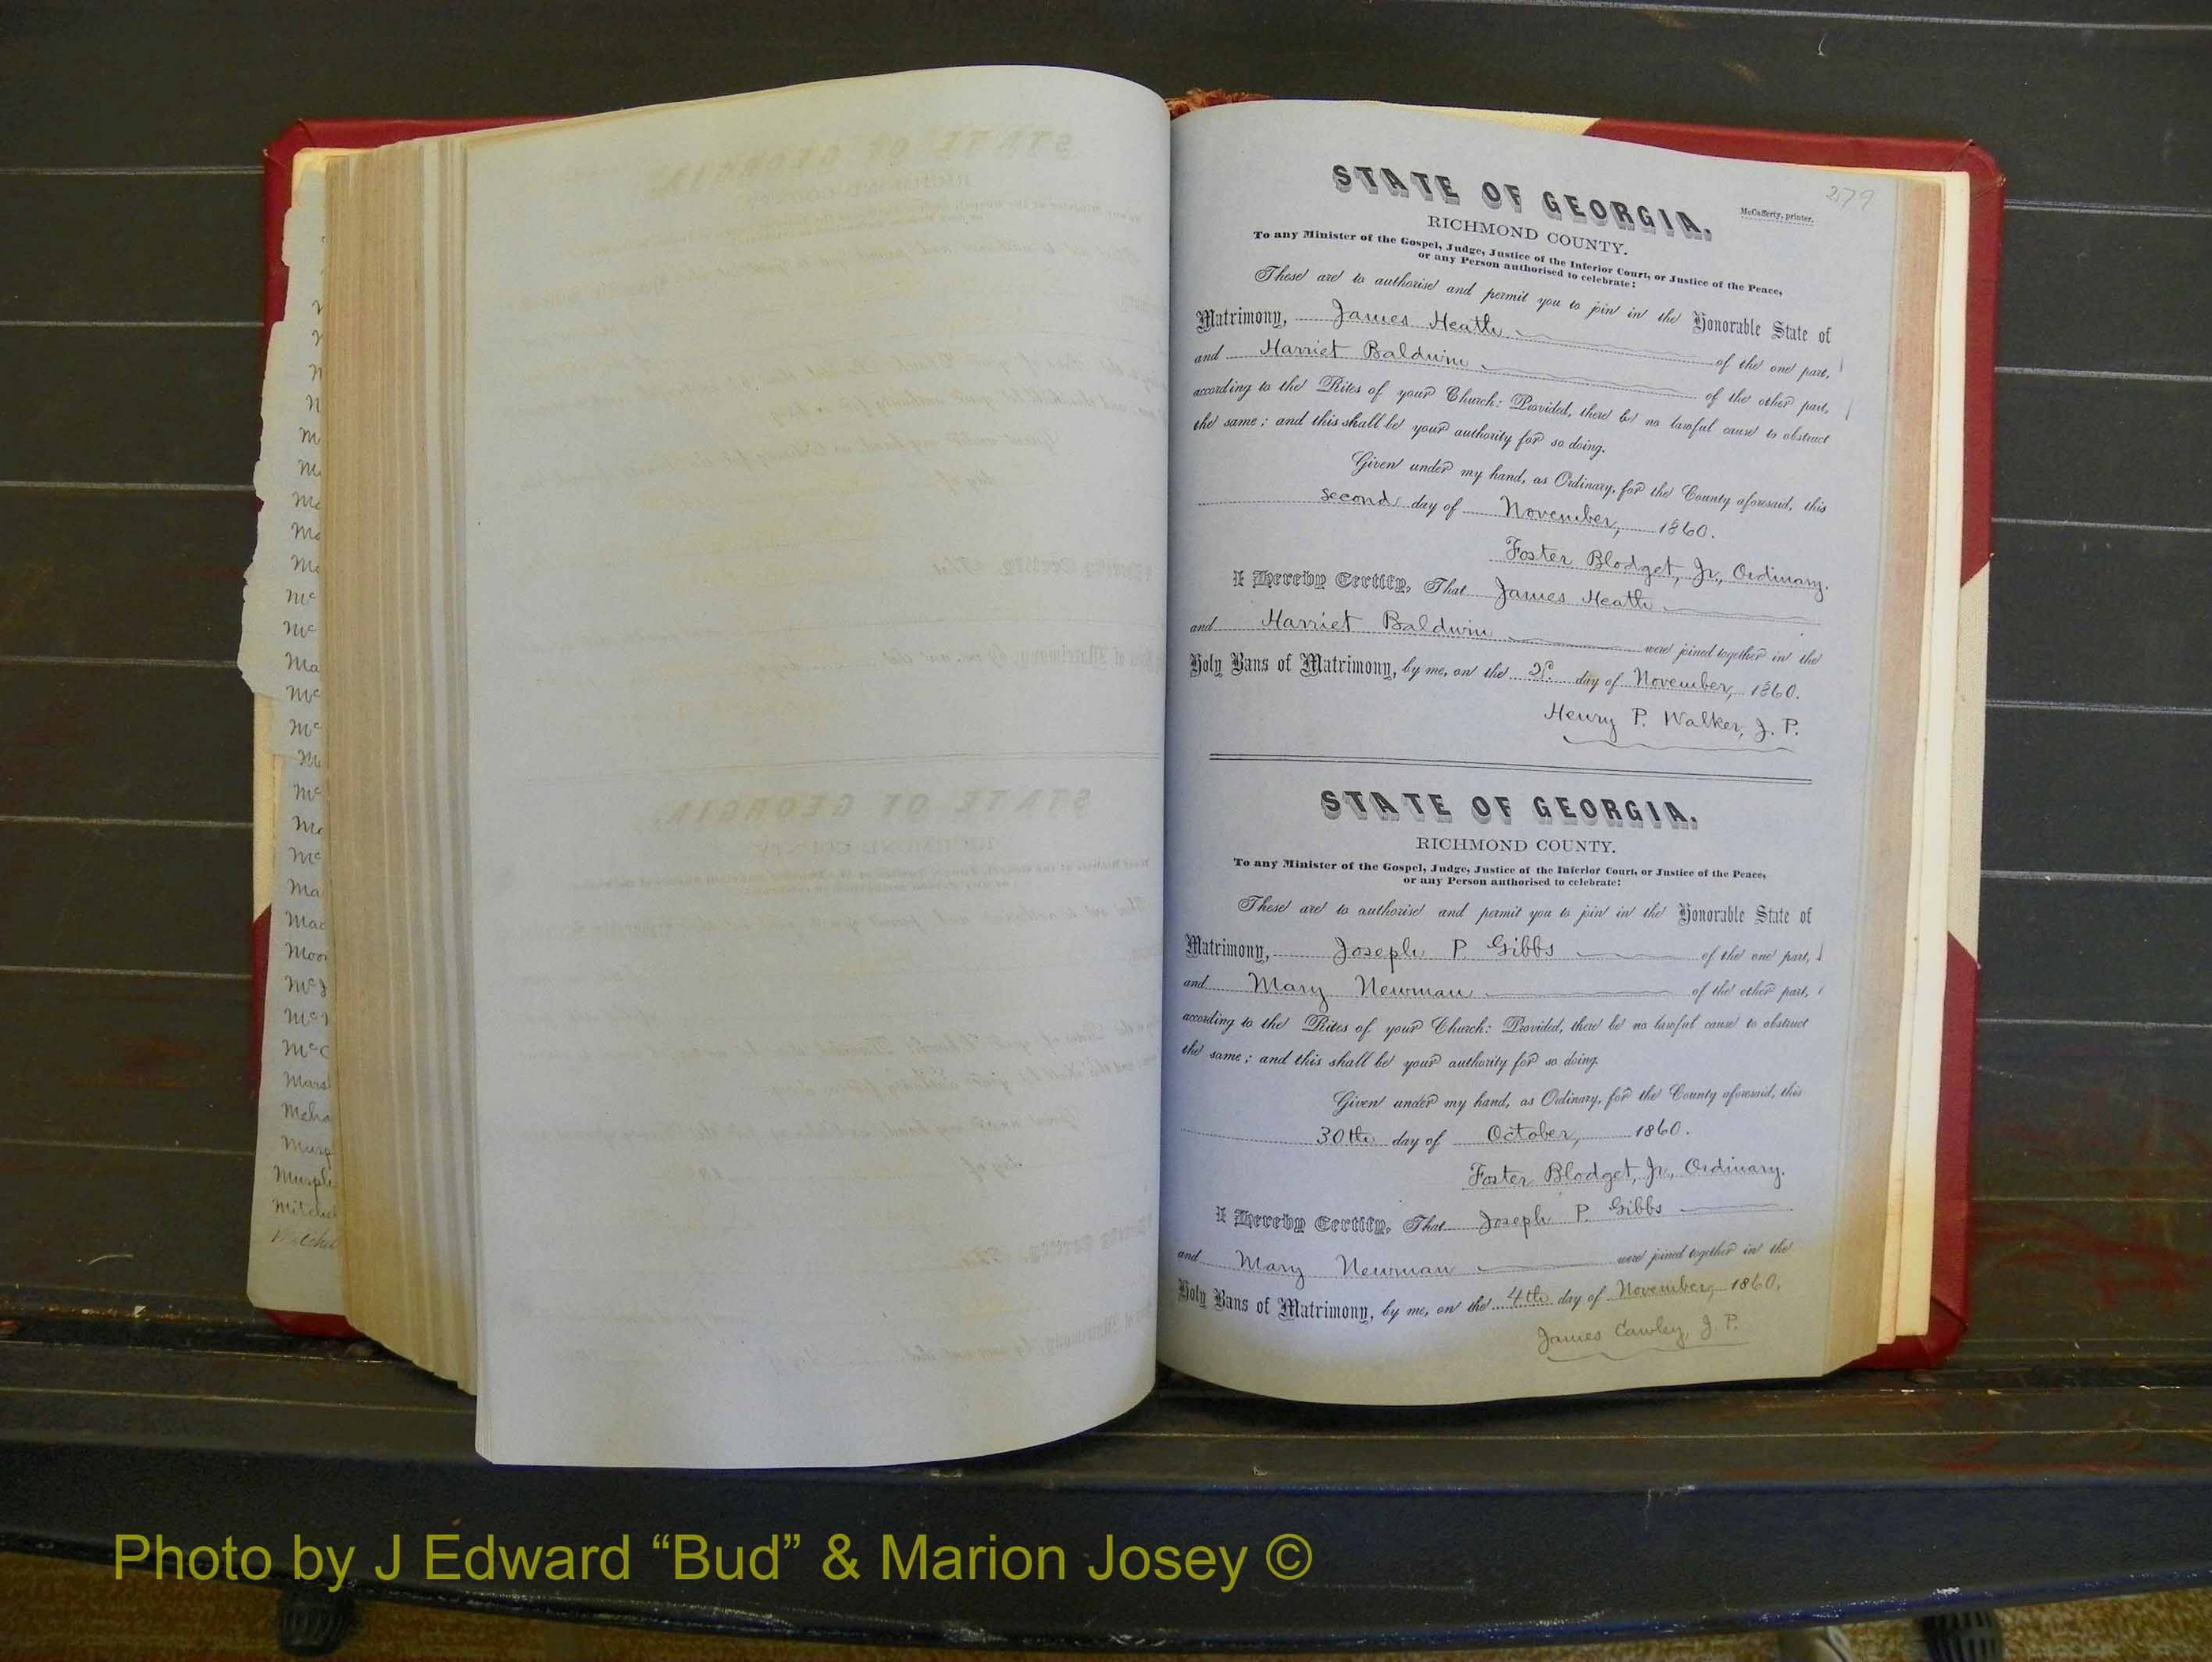 STATE OF GEORGIA.
McCafferty, printer.
279
RICHMOND COUNTY.
To any Minister of the Gospel, Judge, Justice of the Inferior Court, or Justice of the Peace,
or any Person authorised to celebrate:
These are to authorise and permit you to join in the Honorable State of
Matrimony, James Heath of the one part,
and Harriet Baldwin of the other part,
according to the Rites of your Church: Provided, there be no lawful cause to obstruct
the same; and this shall be your authority for so doing.
Given under my hand, as Ordinary, for the County aforesaid, this
second day of November, 1860.
Foster Blodget, Jr., Ordinary.
I Hereby Certify, That James Heath
and Harriet Baldwin were joined together in the
Holy Bans of Matrimony, by me, on the 2d. day of November, 1860.
Henry P. Walker, J. P.
STATE OF GEORGIA.
RICHMOND COUNTY.
To any Minister of the Gospel, Judge, Justice of the Inferior Court, or Justice of the Peace,
or any Person authorised to celebrate:
These are to authorise and permit you to join in the Honorable State of
Matrimony, Joseph P. Gibbs of the one part,
and Mary Newman of the other part,
according to the Rites of your Church: Provided, there be no lawful cause to obstruct
the same; and this shall be your authority for so doing.
Given under my hand, as Ordinary, for the County aforesaid, this
30th day of October, 1860.
Foster Blodget, Jr., Ordinary.
I Hereby Certify, That Joseph P. Gibbs
and Mary Newman were joined together in the
Holy Bans of Matrimony, by me, on the 4th day of November, 1860.
James Cawley, J. P.
Photo by J Edward “Bud” & Marion Josey ©